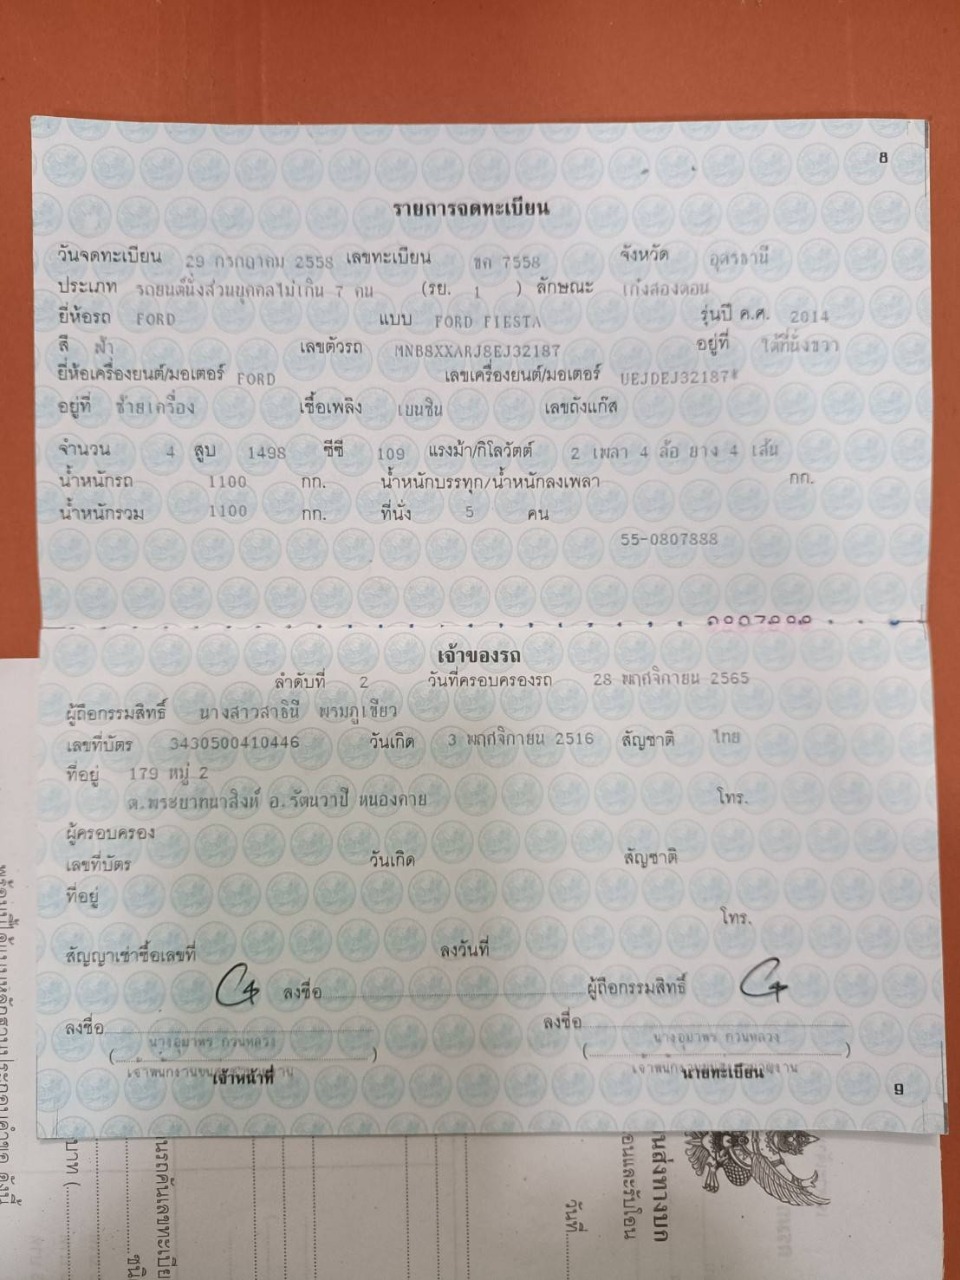 8
รายการจดทะเบียน
วันจดทะเบียน 29 กรกฎาคม 2558 เลขทะเบียน ขค 7558 จังหวัด อุดรธานี
ประเภท รถยนต์นั่งส่วนบุคคลไม่เกิน 7 คน (รย. 1 ) ลักษณะ เก๋งสองตอน
ยี่ห้อรถ FORD แบบ FORD FIESTA รุ่นปี ค.ศ. 2014
สี ฟ้า เลขตัวรถ MNB8XXARJ8EJ32187 อยู่ที่ ใต้ที่นั่งขวา
ยี่ห้อเครื่องยนต์/มอเตอร์ FORD เลขเครื่องยนต์/มอเตอร์ UEJDEJ32187*
อยู่ที่ ซ้ายเครื่อง เชื้อเพลิง เบนซิน เลขถังแก๊ส
จำนวน 4 สูบ 1498 ซีซี 109 แรงม้า/กิโลวัตต์ 2 เพลา 4 ล้อ ยาง 4 เส้น
น้ำหนักรถ 1100 กก. น้ำหนักบรรทุก/น้ำหนักลงเพลา กก.
น้ำหนักรวม 1100 กก. ที่นั่ง 5 คน
55-0807888
เจ้าของรถ
ลำดับที่ 2 วันที่ครอบครองรถ 28 พฤศจิกายน 2565
ผู้ถือกรรมสิทธิ์ นางสาวสาธินี พรมภูเขียว
เลขที่บัตร 3430500410446 วันเกิด 3 พฤศจิกายน 2516 สัญชาติ ไทย
ที่อยู่ 179 หมู่ 2
ต.พระบาทนาสิงห์ อ.รัตนวาปี หนองคาย โทร.
ผู้ครอบครอง
เลขที่บัตร วันเกิด สัญชาติ
ที่อยู่
โทร.
สัญญาเช่าซื้อเลขที่ ลงวันที่
ลงชื่อ ผู้ถือกรรมสิทธิ์
ลงชื่อ ลงชื่อ
(นางอุมาพร กวนหลวง) (นางอุมาพร กวนหลวง)
เจ้าหน้าที่ นายทะเบียน
9